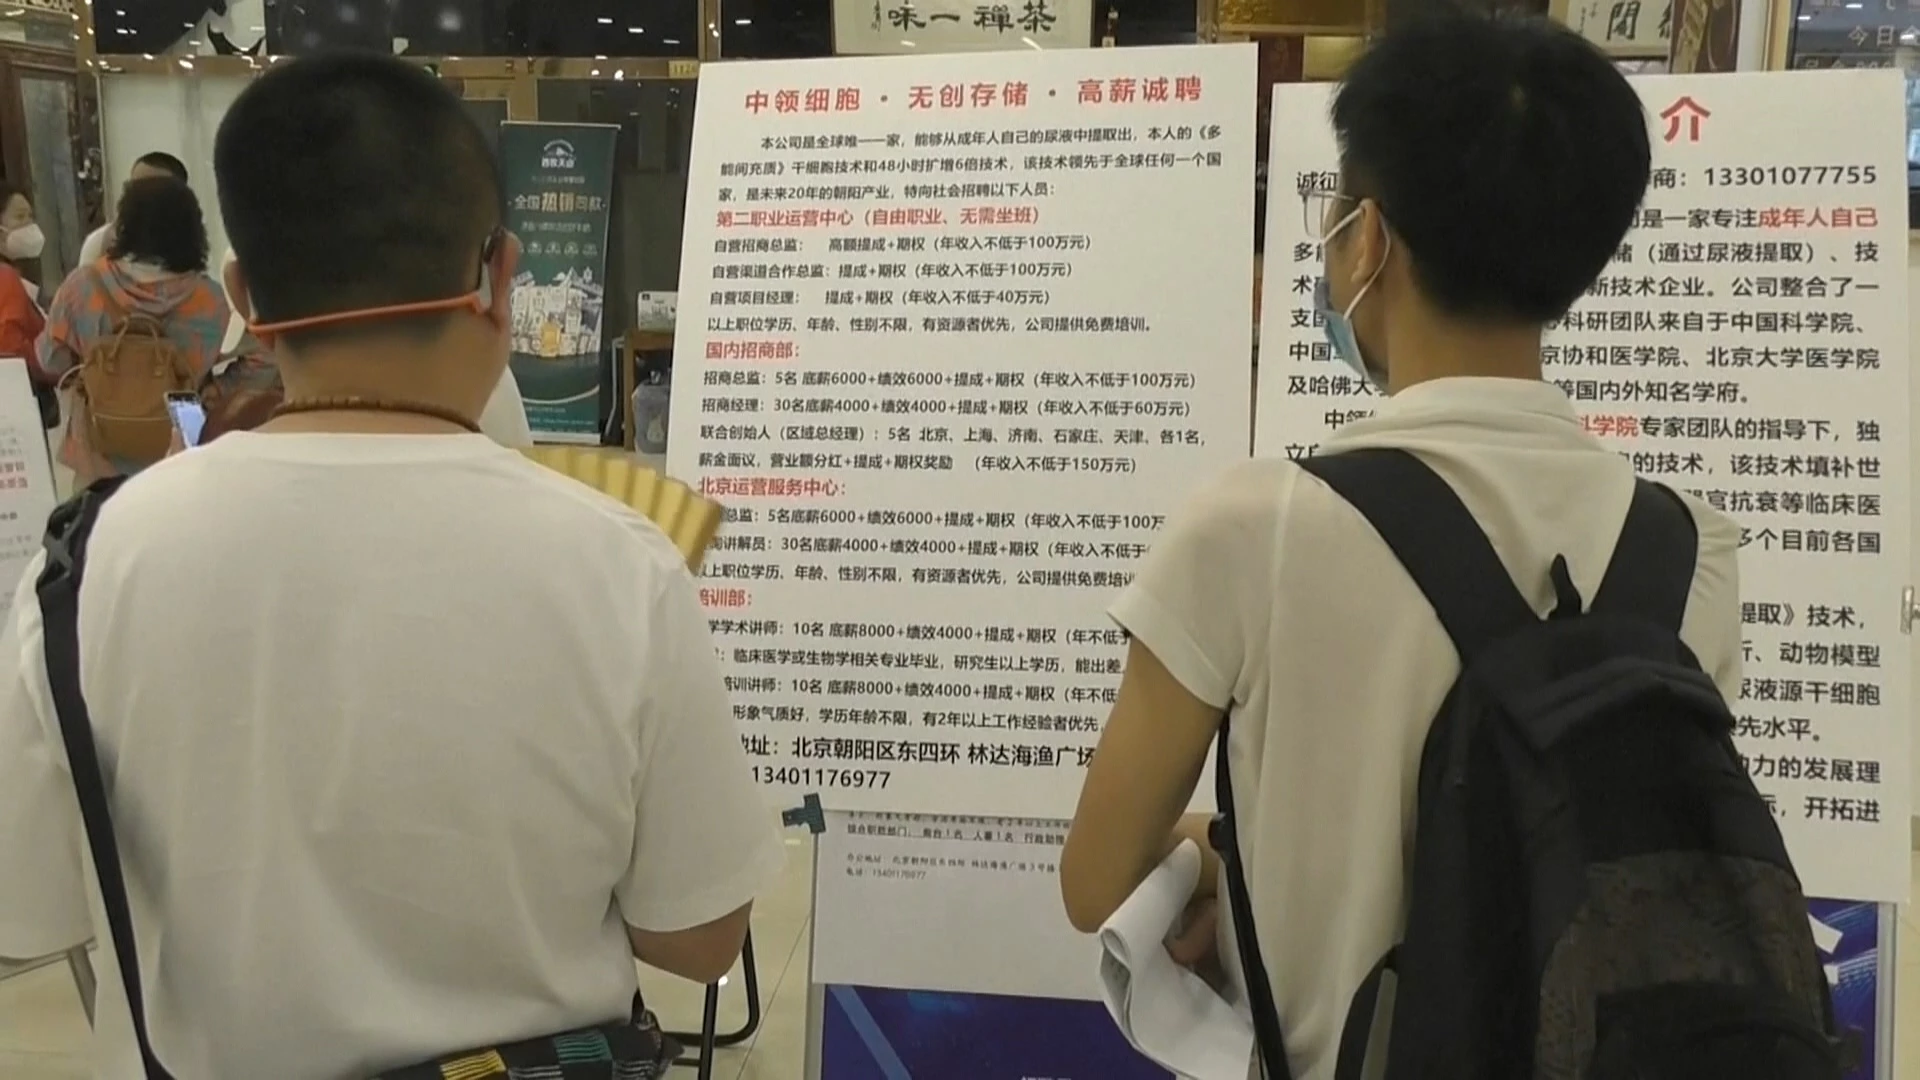 味一禪茶
今日
全国热销同款
中领细胞·无创存储·高薪诚聘
本公司是全球唯一一家，能够从成年人自己的尿液中提取出，本人的《多
能间充质》干细胞技术和48小时扩增6倍技术，该技术领先于全球任何一个国
家，是未来20年的朝阳产业，特向社会招聘以下人员：
第二职业运营中心（自由职业、无需坐班）
自营招商总监： 高额提成+期权（年收入不低于100万元）
自营渠道合作总监：提成+期权（年收入不低于100万元）
自营项目经理： 提成+期权（年收入不低于40万元）
以上职位学历、年龄、性别不限，有资源者优先，公司提供免费培训。
国内招商部：
招商总监：5名 底薪6000+绩效6000+提成+期权（年收入不低于100万元）
招商经理：30名底薪4000+绩效4000+提成+期权（年收入不低于60万元）
联合创始人（区域总经理）：5名 北京、上海、济南、石家庄、天津、各1名，
薪金面议，营业额分红+提成+期权奖励 （年收入不低于150万元）
北京运营服务中心：
总监：5名底薪6000+绩效6000+提成+期权（年收入不低于100万
讲解员：30名底薪4000+绩效4000+提成+期权（年收入不低于
以上职位学历、年龄、性别不限，有资源者优先，公司提供免费培训
培训部：
学学术讲师：10名 底薪8000+绩效4000+提成+期权（年不低于
：临床医学或生物学相关专业毕业，研究生以上学历，能出差
培训讲师：10名 底薪8000+绩效4000+提成+期权（年不低
形象气质好，学历年龄不限，有2年以上工作经验者优先，
地址：北京朝阳区东四环 林达海渔广场
13401176977
综合职能部门： 前台1名 人事1名 行政助理
办公地址 北京朝阳区东四环 林达海渔广场3号楼
电话：13401176977
介
诚征 商：13301077755
司是一家专注成年人自己
多 储（通过尿液提取）、技
术 新技术企业。公司整合了一
支 科研团队来自于中国科学院、
中国 京协和医学院、北京大学医学院
及哈佛大 等国内外知名学府。
中领 科学院专家团队的指导下，独
立 的技术，该技术填补世
官抗衰等临床医
多个目前各国
提取》技术，
析、动物模型
尿液源干细胞
先水平。
力的发展理
标，开拓进